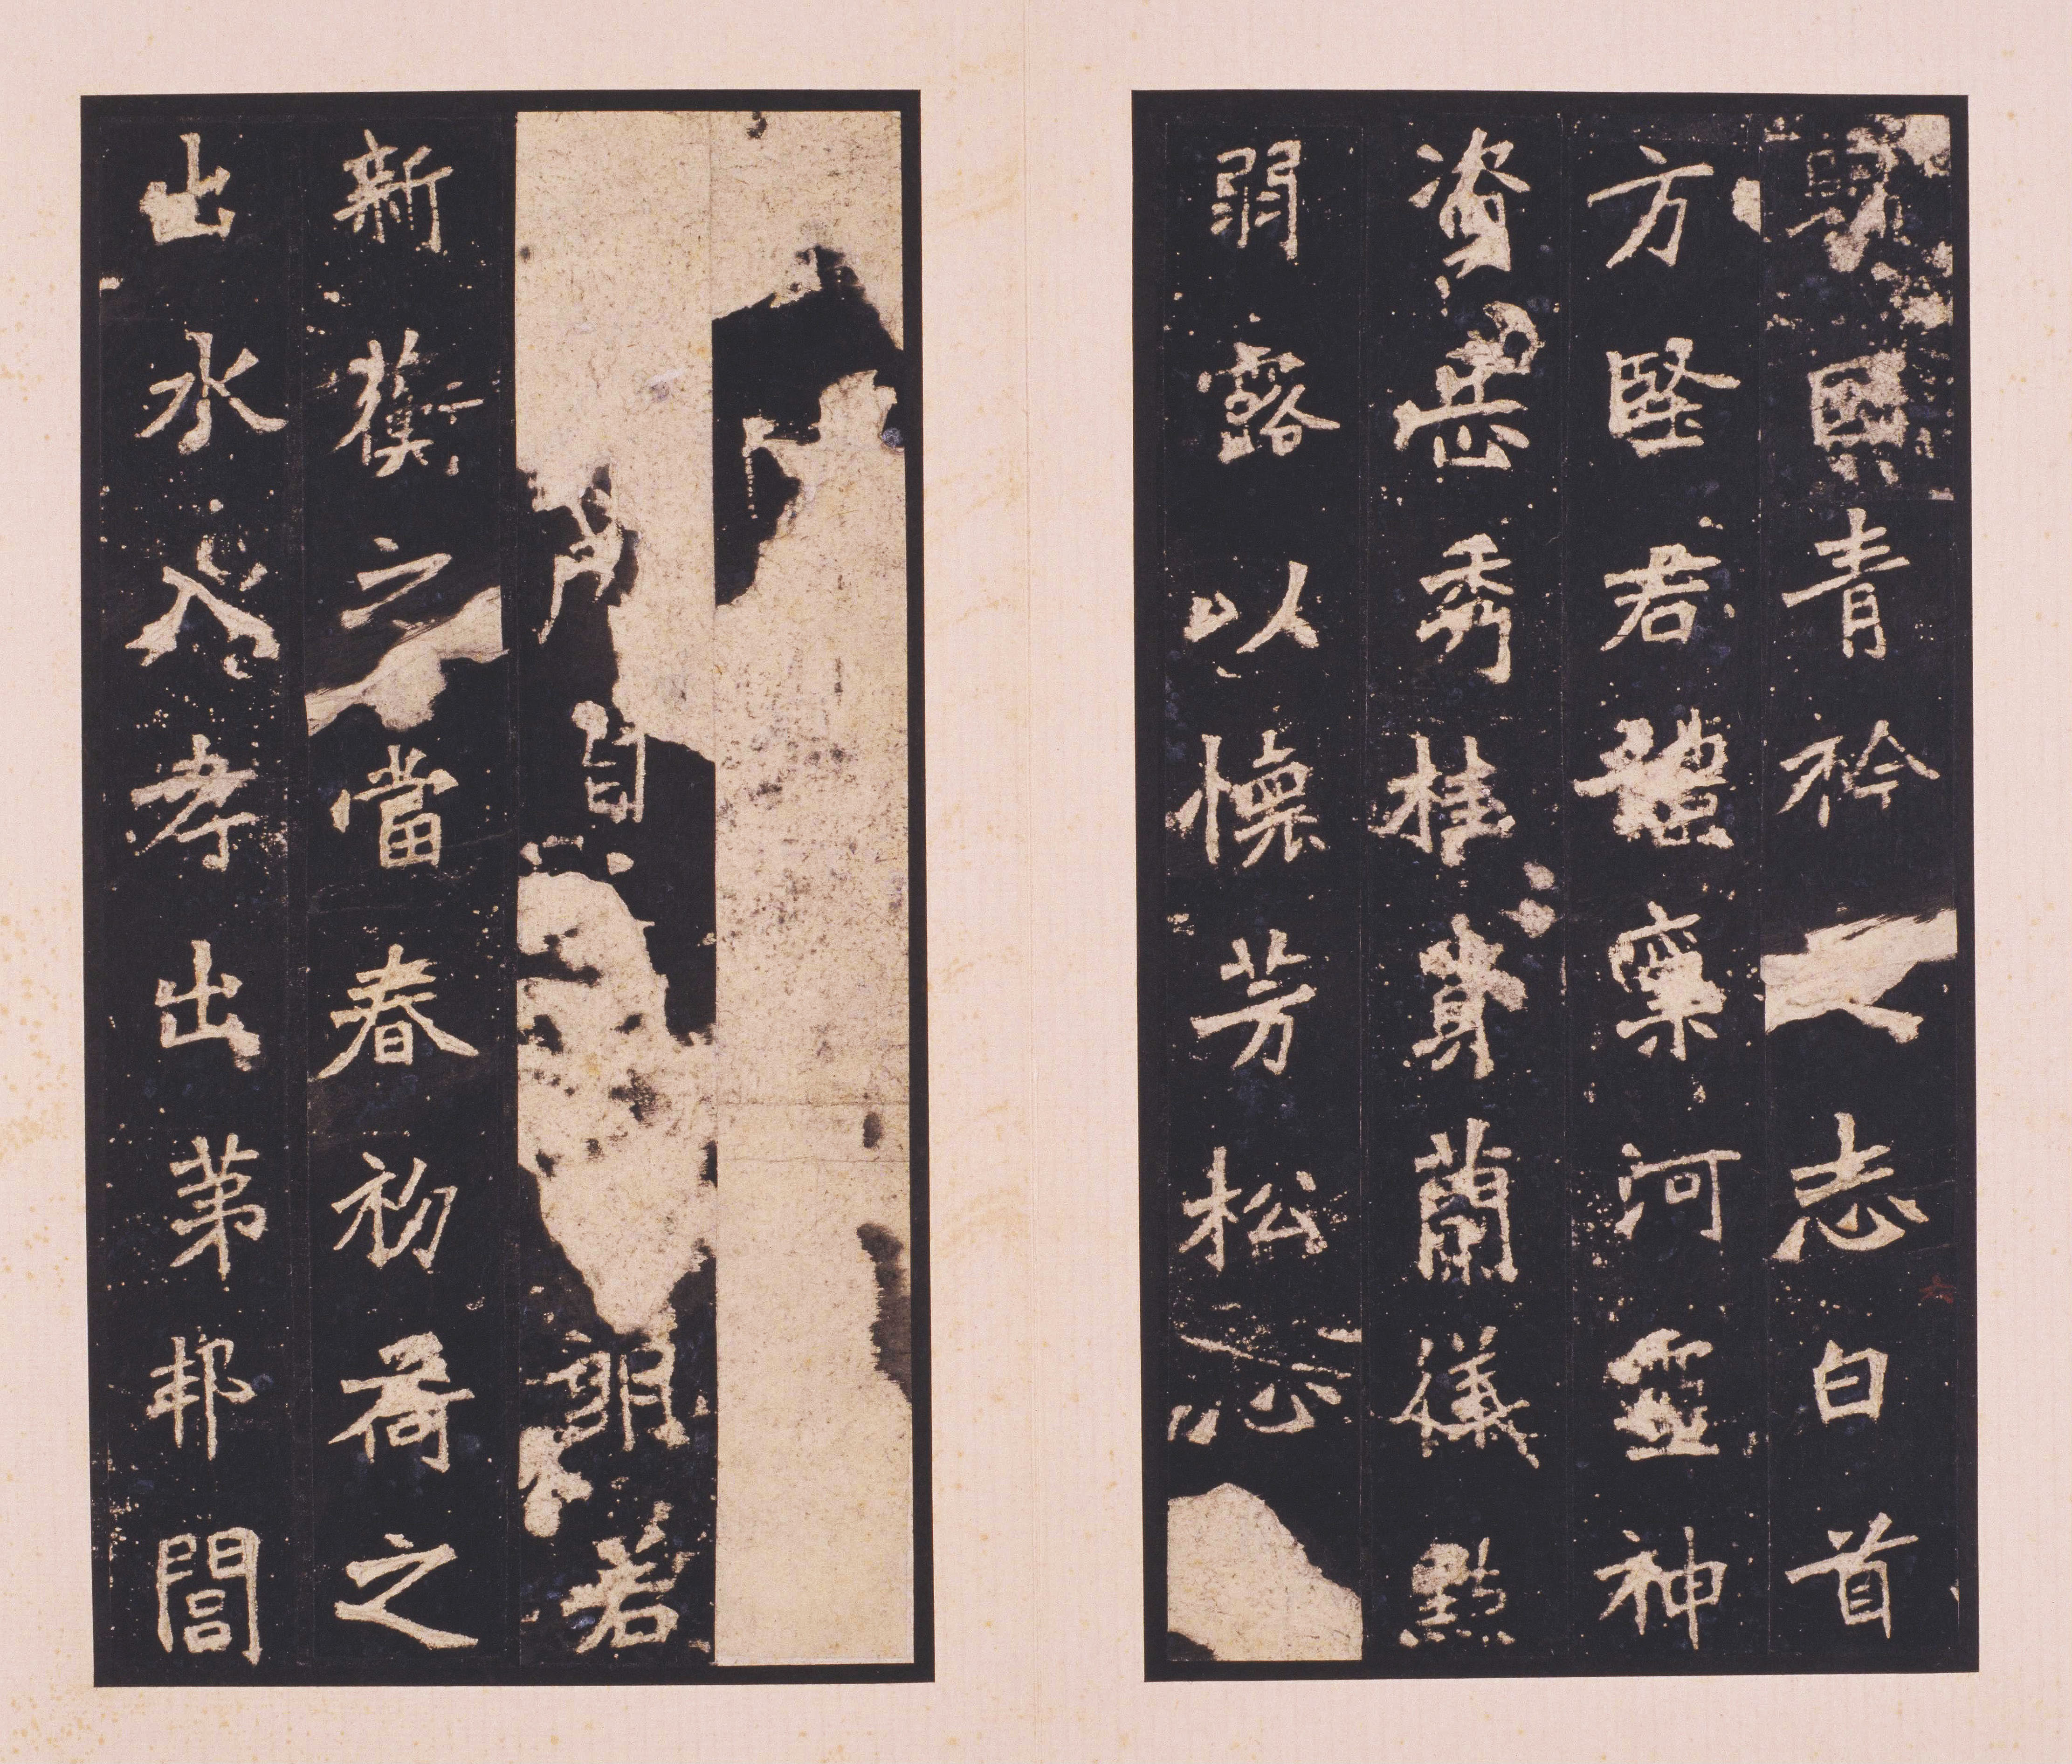 青衿之志白首
方堅君體稟河靈神
資岳秀桂質蘭儀點
弱露以懷芳松心
朗若
新蘅之當春初荷之
出水入孝出苐邦閭